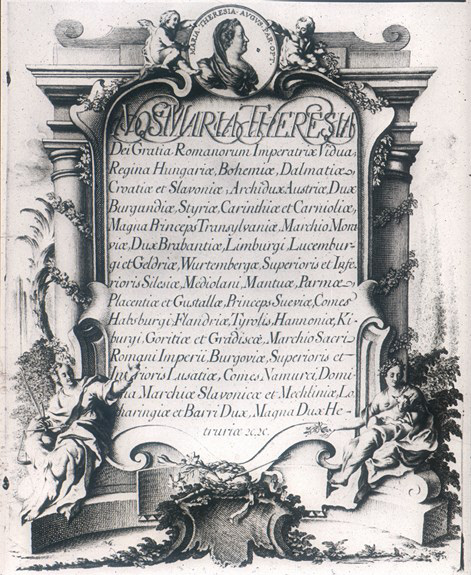 MARIA·THERESIA·AVGVS·PAR·OPT·
NOS MARIA THERESIA
Dei Gratia Romanorum Imperatriæ Vidua,
Regina Hungariæ, Bohemiæ, Dalmatiæ,
Croatiæ et Slavoniæ, Archidux Austriæ, Dux
Burgundiæ, Styriæ, Carinthiæ et Carnioliæ,
Magna Princeps Transylvaniæ, Marchio Mora
viæ, Dux Brabantiæ, Limburgi, Lucembur-
gi et Geldriæ, Würtembergæ, Superioris et Infe
rioris Silesiæ, Mediolani, Mantuæ, Parmæ,
Placentiæ et Gustallæ, Princeps Sueviæ, Comes
Habsburgi, Flandriæ, Tyrolis, Hannoniæ, Ki
burgi, Goritiæ et Gradiscæ, Marchio Sacri
Romani Imperii, Burgoviæ, Superioris et
Inferioris Lusatiæ, Comes Namurci, Domi
na Marchiæ Slavonicæ et Mechliniæ, Lo
tharingiæ et Barri Dux, Magna Dux He-
truriæ &c. &c.